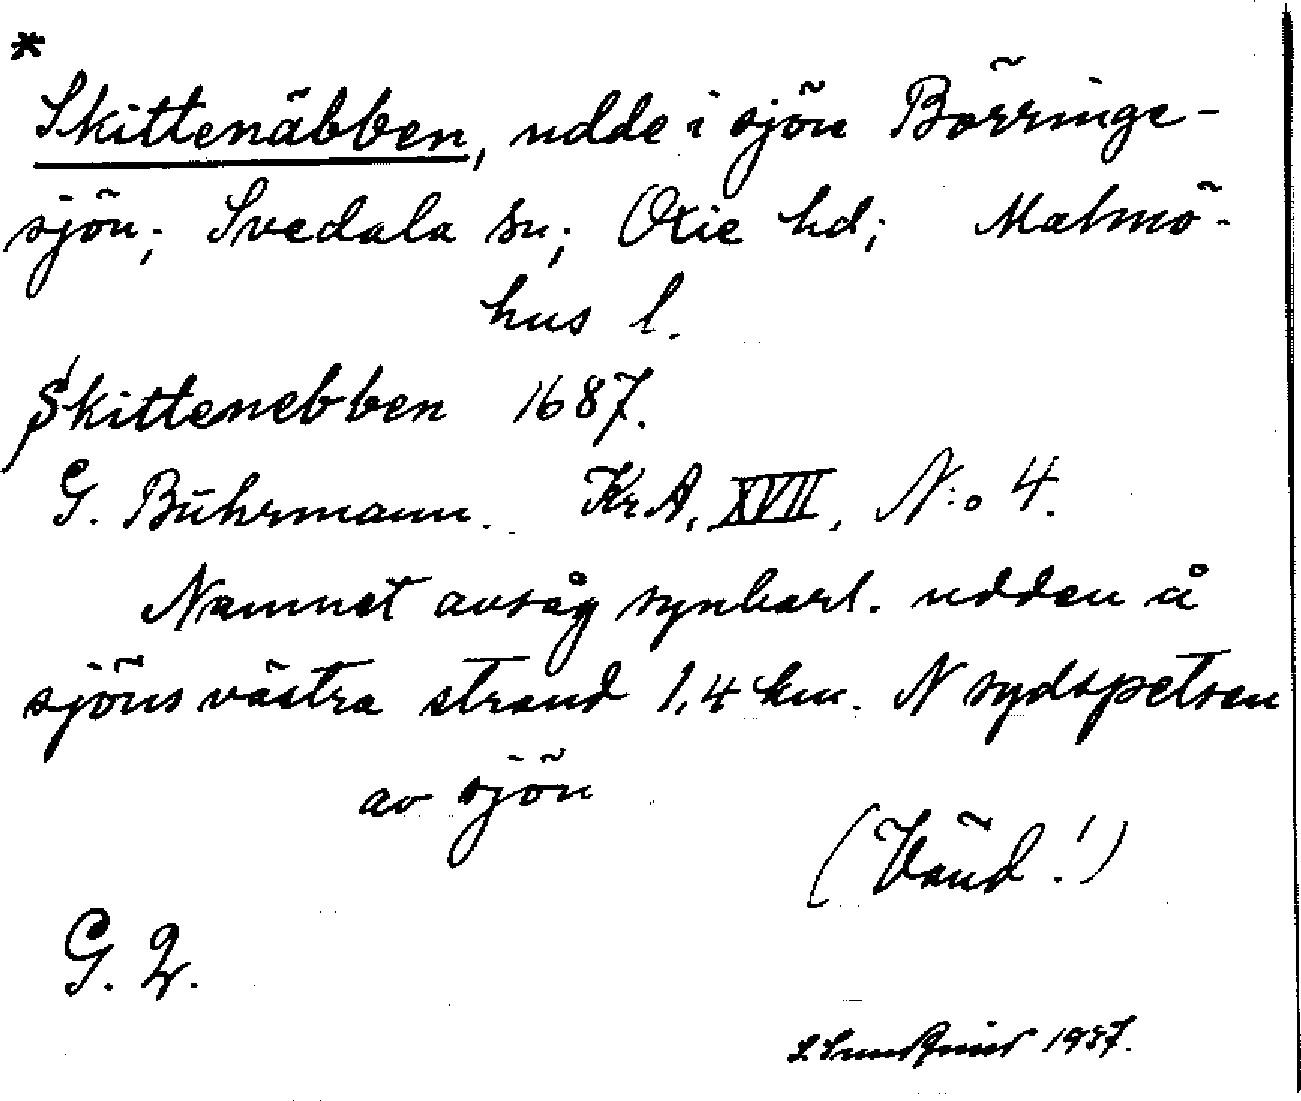 *
Skittenäbben, udde i sjön Börringe-
sjön; Svedala sn; Oxie hd; Malmö-
hus l.
Skittenebben 1687.
G. Buhrmann. KrA, XVII, N:o 4.
Namnet avsåg synbarl. udden å
sjöns västra strand 1,4 km. N sydspetsen
av sjön
(Vänd!)
G. 2.
1937.